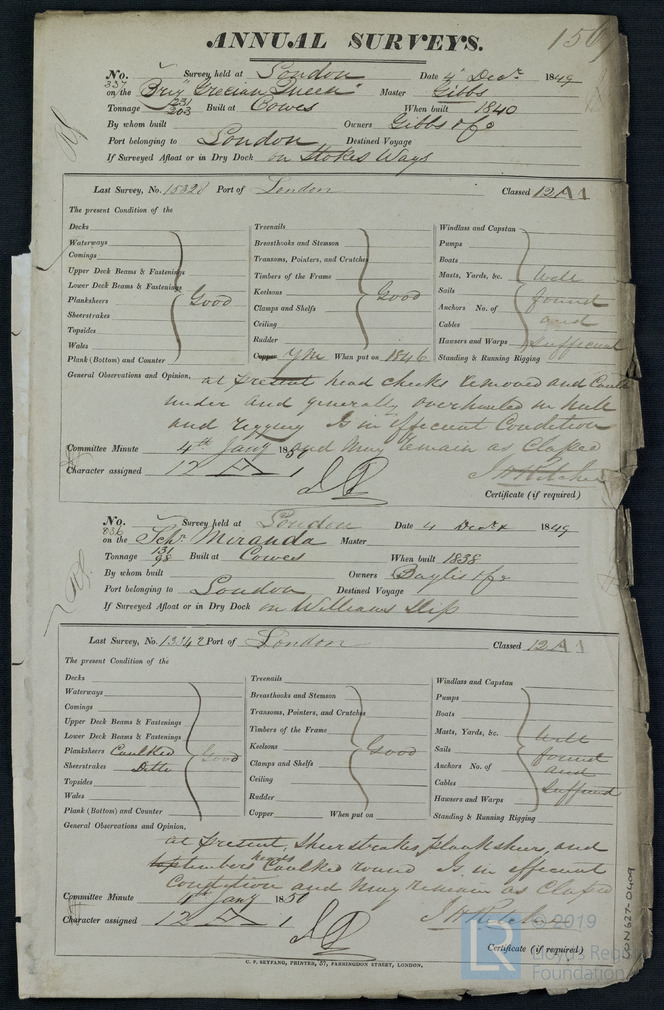 ANNUAL SURVEYS.
156
No. Survey held at London Date 4 Decr. 1849
337
on the Brig "Grecian Queen" Master Gibbs
Tonnage 231/203 Built at Cowes When built 1840
By whom built Owners Gibbs & Co
Port belonging to London Destined Voyage
If Surveyed Afloat or in Dry Dock on Stokes Ways
Last Survey, No. Port of London Classed 12 A 1
The present Condition of the
Decks Treenails Windlass and Capstan
Waterways Breasthooks and Stemson Pumps
Comings Transoms, Pointers, and Crutches Boats
Upper Deck Beams & Fastenings Timbers of the Frame Masts, Yards, &c. Well
Lower Deck Beams & Fastenings Keelsons Sails found
Planksheers Good Clamps and Shelfs Good Anchors No. of and
Sheerstrakes Ceiling Cables sufficient
Topsides Rudder Hawsers and Warps
Wales Copper Y M When put on 1846 Standing & Running Rigging
Plank (Bottom) and Counter
General Observations and Opinion, at present head checks removed and Caulk
under and generally overhauled in hull
and rigging Is in efficient Condition
Committee Minute 4th Jany 1850 and may remain as Classed
Character assigned 12 A 1
Certificate (if required)
No. Survey held at London Date 4 Decr 1849
336
on the Schr. Miranda Master
Tonnage 131/98 Built at Cowes When built 1838
By whom built Owners Baylis & Co
Port belonging to London Destined Voyage
If Surveyed Afloat or in Dry Dock on Williams Slip
Last Survey, No. 13342 Port of London Classed 12 A 1
The present Condition of the
Decks Treenails Windlass and Capstan
Waterways Breasthooks and Stemson Pumps
Comings Transoms, Pointers, and Crutches Boats
Upper Deck Beams & Fastenings Timbers of the Frame Masts, Yards, &c. Well
Lower Deck Beams & Fastenings Keelsons Sails found
Planksheers Caulked Good Clamps and Shelfs Good Anchors No. of and
Sheerstrakes Ditto Ceiling Cables Sufficient
Topsides Rudder Hawsers and Warps
Wales Copper When put on Standing & Running Rigging
Plank (Bottom) and Counter
General Observations and Opinion,
at present, Sheerstrakes planksheers, and
Caulked round Is in efficient
Condition and may remain as Classed
Committee Minute 4th Jany 1850
Character assigned 12 A 1
Certificate (if required)
C. F. SEYFANG, PRINTER, 57, FARRINGDON STREET, LONDON.
LR
© 2019
Lloyd's Register
Foundation